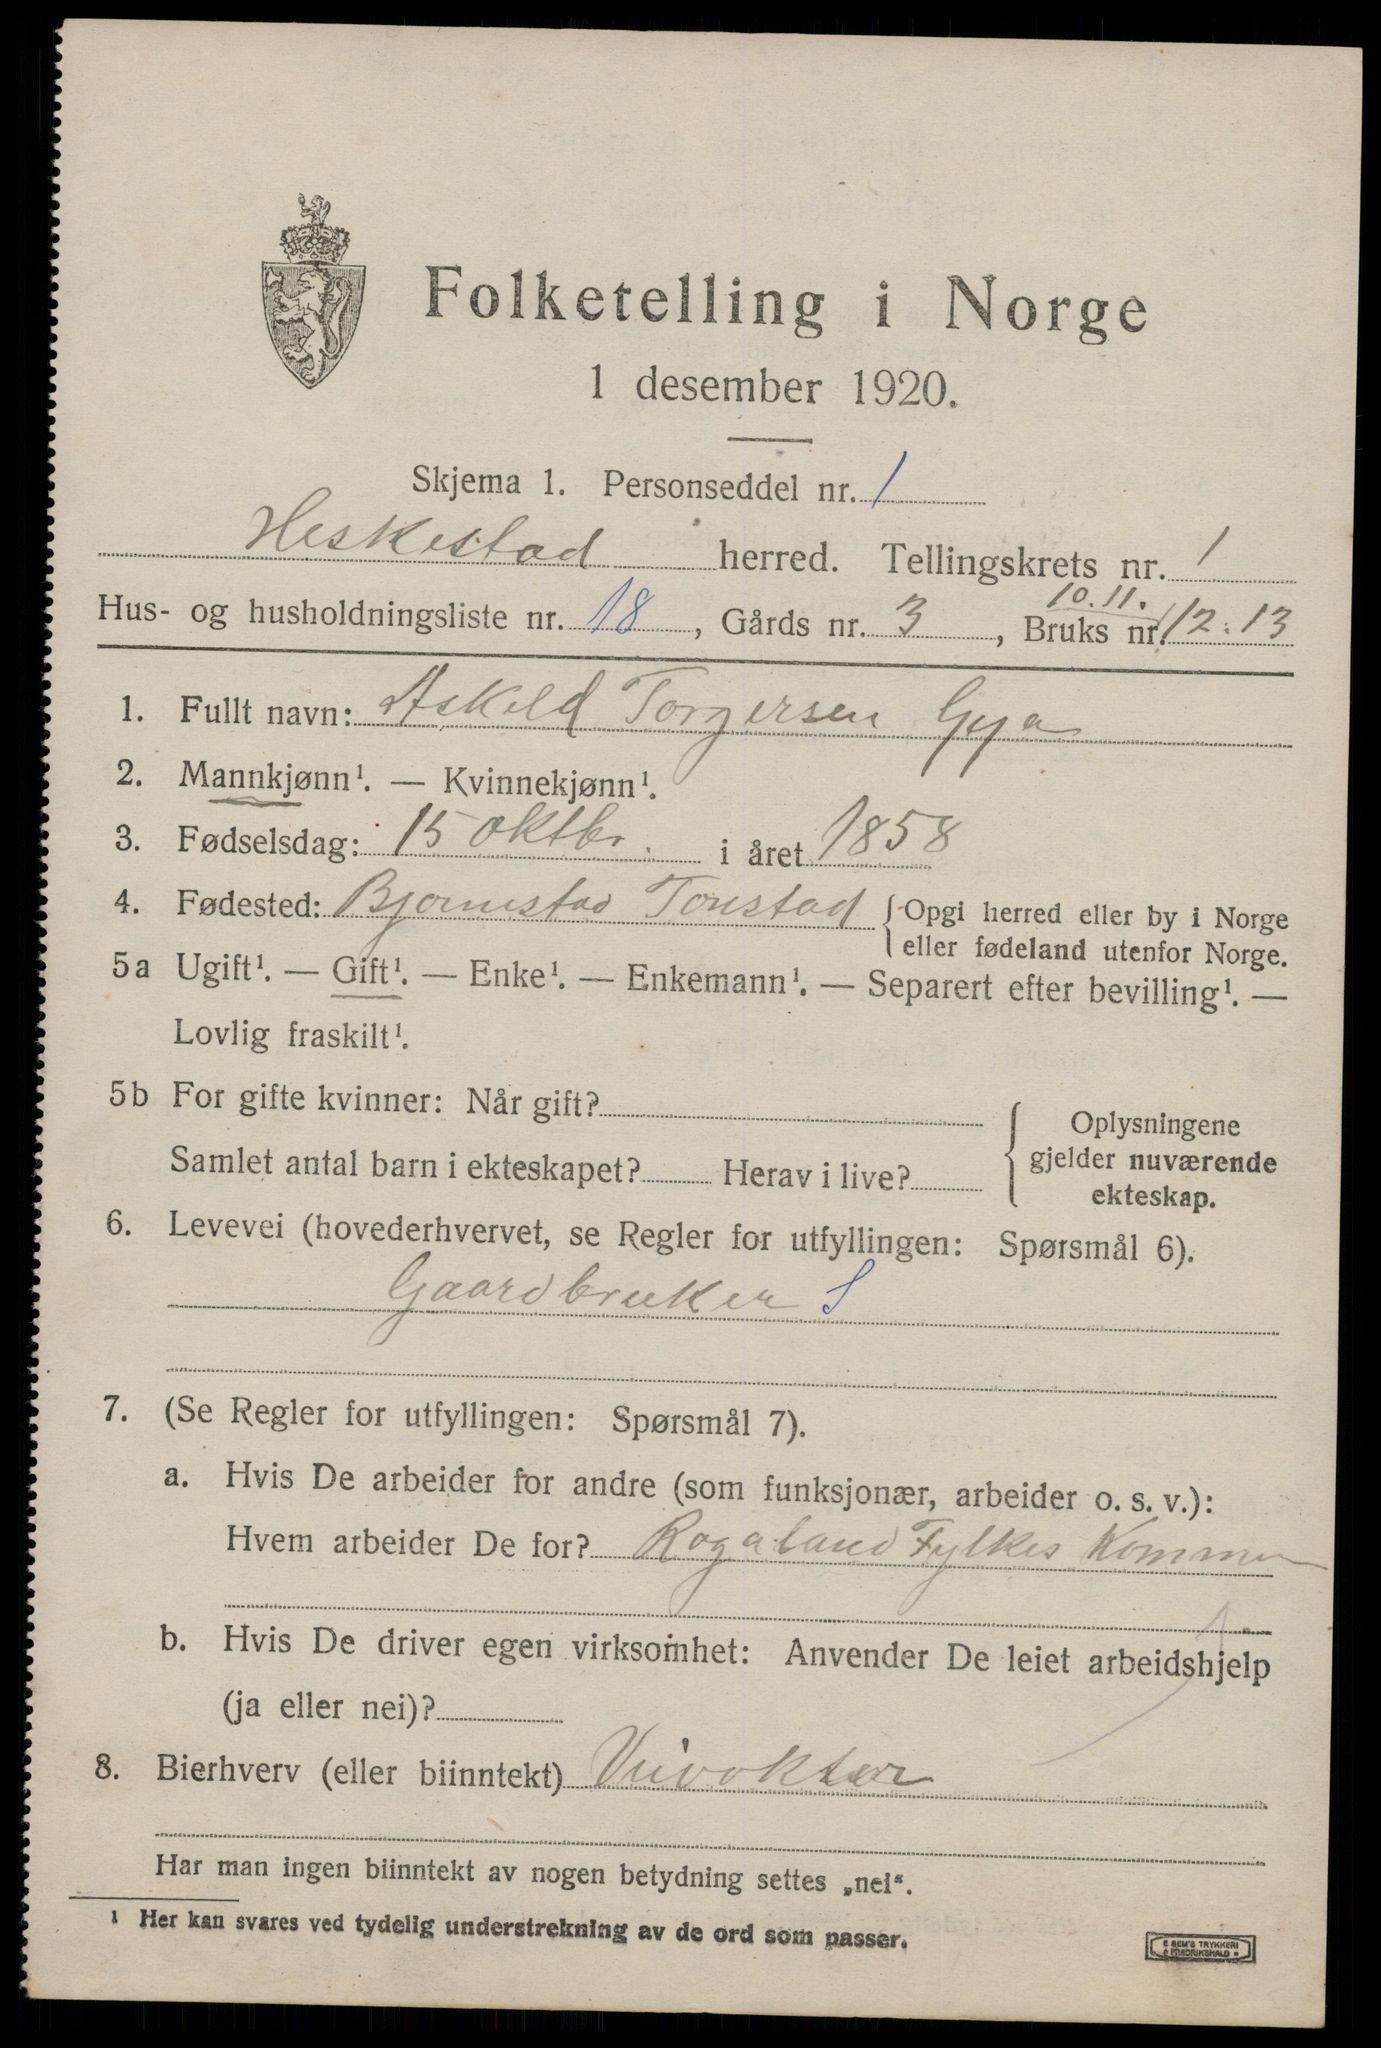 Folketelling i Norge
1 desember 1920.
Skjema 1. Personseddel nr. 1
Heskestad herred. Tellingskrets nr. 1
10.11.
Hus- og husholdningsliste nr. 18, Gårds nr. 3, Bruks nr. 12.13
1. Fullt navn: Askild Torgersen Gya
2. Mannkjønn¹. — Kvinnekjønn¹.
3. Fødselsdag: 15 oktbr. i året 1858
4. Fødested: Bjørnestad Tonstad {Opgi herred eller by i Norge
eller fødeland utenfor Norge.
5a Ugift¹. — Gift¹. — Enke¹. — Enkemann¹. — Separert efter bevilling¹. —
Lovlig fraskilt¹.
5b For gifte kvinner: Når gift?
Samlet antal barn i ekteskapet? Herav i live?
{Oplysningene
gjelder nuværende
ekteskap.
6. Levevei (hovederhvervet, se Regler for utfyllingen: Spørsmål 6).
Gaardbruker S
7. (Se Regler for utfyllingen: Spørsmål 7).
a. Hvis De arbeider for andre (som funksjonær, arbeider o. s. v.):
Hvem arbeider De for? Rogaland Fylkes Kommun
b. Hvis De driver egen virksomhet: Anvender De leiet arbeidshjelp
(ja eller nei)?
8. Bierhverv (eller biinntekt) Veivokter
Har man ingen biinntekt av nogen betydning settes „nei“.
¹ Her kan svares ved tydelig understrekning av de ord som passer.
E SEM'S TRYKKERI
FREDRIKSHALD